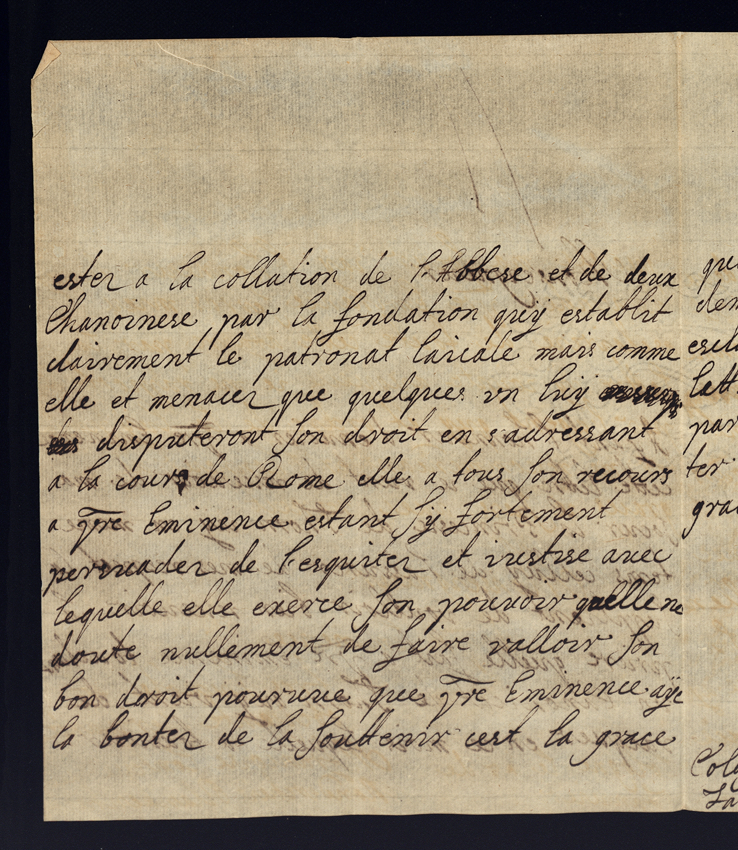 ester a la collation de l'Abbese et de deux
Chanoinese par la fondation quÿ establit
clairement le patronat laicale mais comme
elle et menacer que quelques vn luÿ
disputeront son droit en s'adressant
a la cour de Rome elle a tous son recours
a vre Eminence estant sÿ fortement
persuader de l'esquiter et iustise avec
lequelle elle exerce son pouvoir quelle ne
doute nullement de faire valloir son
bon droit pourvue que vre Eminence aÿe
la bonter de la souttenir cest la grace
que
par
ter
grac